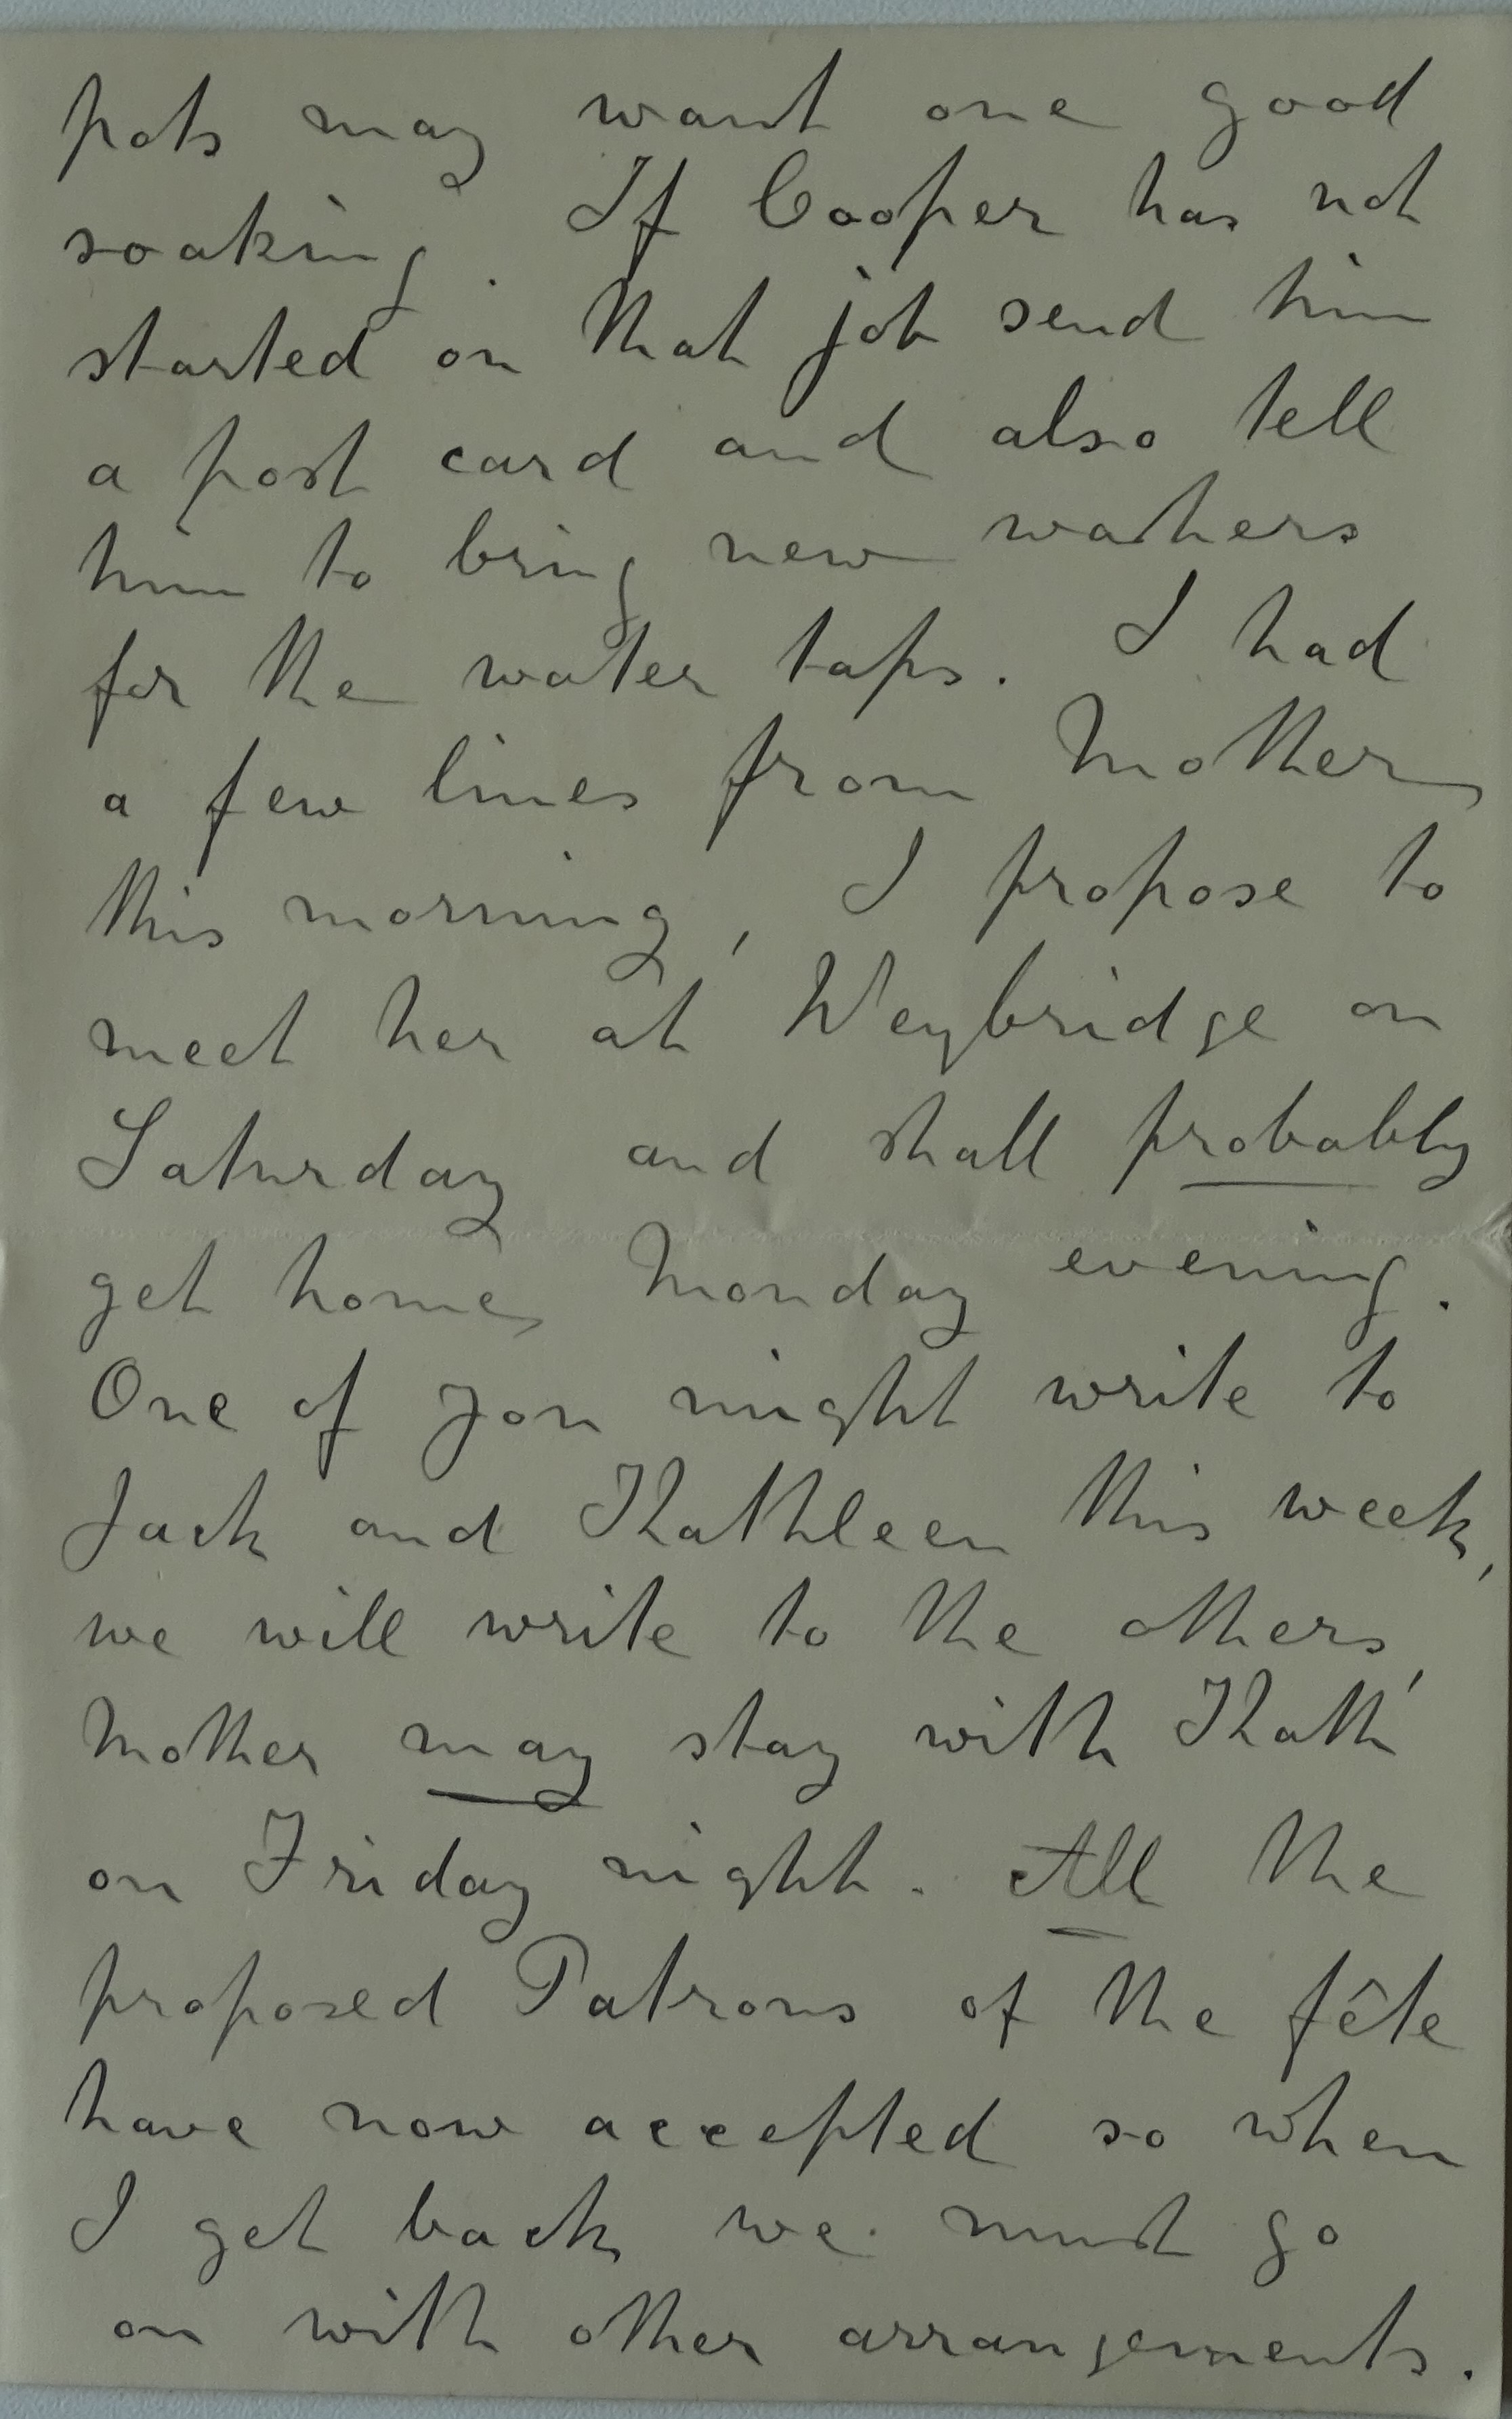 pots may want one good
soaking. If Cooper has not
started on that job send him
a post card and also tell
him to bring new washers
for the water taps. I had
a few lines from Mother
this morning, I propose to
meet her at Weybridge on
Saturday and shall probably
get home Monday evening.
One of you might write to
Jack and Kathleen this week,
we will write to the others,
Mother may stay with Kath
on Friday night. All the
proposed Patrons of the fête
have now accepted so when
I get back we must go
on with other arrangements.